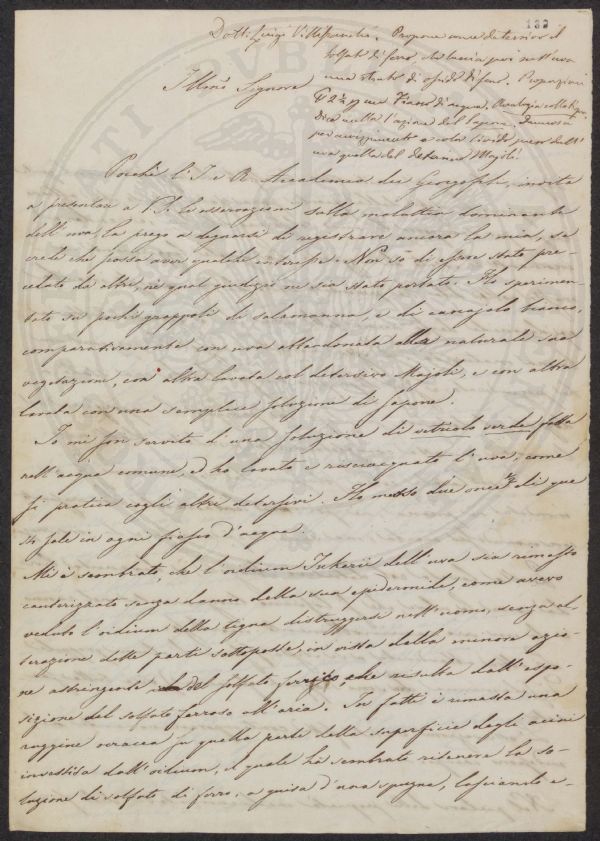 132
Dott. Luigi Villifranchi. Propone come detersivo il
solfato di ferro, che lascia poi nell'uva
uno strato di ossido di ferro. Proporzioni
2 ½ per un Fiasco d'acqua. Analogia colla
dica nulla l'azione del Sapone,
per avvizzimento e cola livido pure dell'
uva quella del Detersivo Majoli.
Illmo Signore
Poichè l'I. e R. Accademia dei Georgofili, invita
a presentare a V. S. le osservazioni sulla malattia dominante
dell'uva, la prego a degnarsi di registrare ancora la mia, se
crede che possa aver qualche interesse. Non so di essere stato pre-
ceduto da altri, nè qual giudizio ne sia stato portato. Ho sperimen-
tato su pochi grappoli di salamanna, e di canajolo bianco,
comparativamente con uva abbandonata alla naturale sua
vegetazione, con altra lavata col detersivo Majoli, e con altra
lavata con una semplice soluzione di Sapone.
Io mi son servito di una soluzione di vetriolo verde fatta
nell'acqua comune, ed ho lavato e risciacquato l'uva, come
si pratica cogli altri detersivi. Ho messo due once ½ di que
sto sale in ogni fiasco d'acqua.
Mi è sembrato, che l'oidium Tukerii dell'uva sia rimasto
cauterizzato senza danno della sua epidermide, come avevo
veduto l'oidium della tigna distruggersi nell'uomo, senza al-
terazione delle parti sottoposte, in ossa dalla minore azio-
ne astringente del solfato ferrico, che risulta dall'espo-
sizione del solfato ferroso all'aria. In fatti è rimasta una
ruggine ocracea su quella parte della superficie degli acini
investita dall'oidium, il quale ha sembrato ritenere la so-
luzione di solfato di ferro, a guisa d'una spugna, lasciando e-